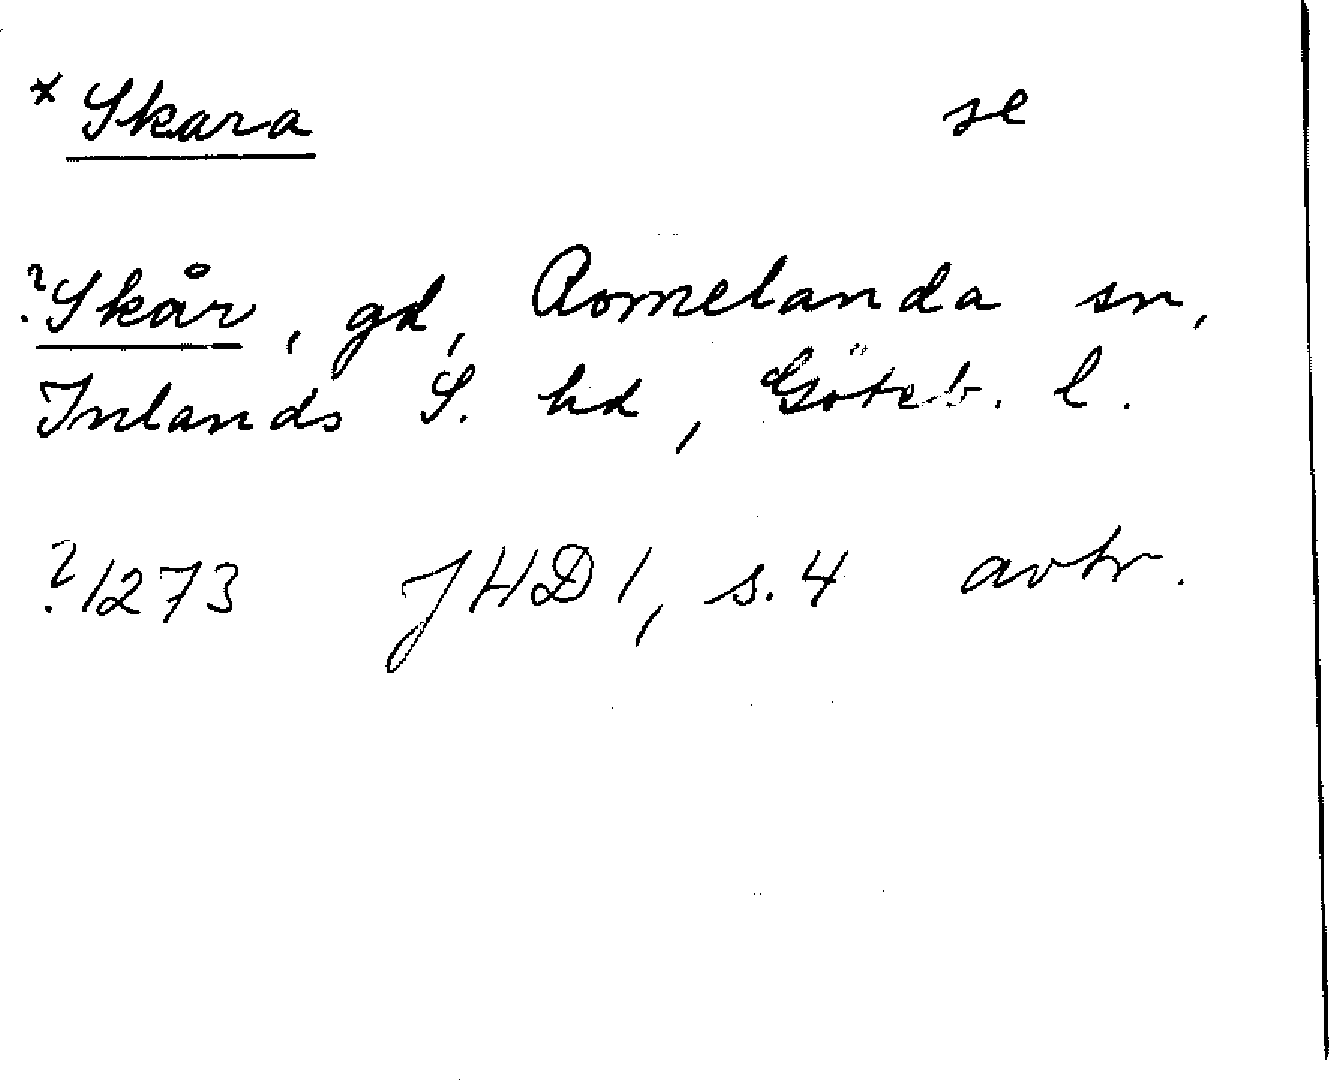 * Skara se
? Skår, gd, Romelanda sn,
Inlands S. hd, Göteb. l.
? 1273 JHD 1, s. 4 avtr.